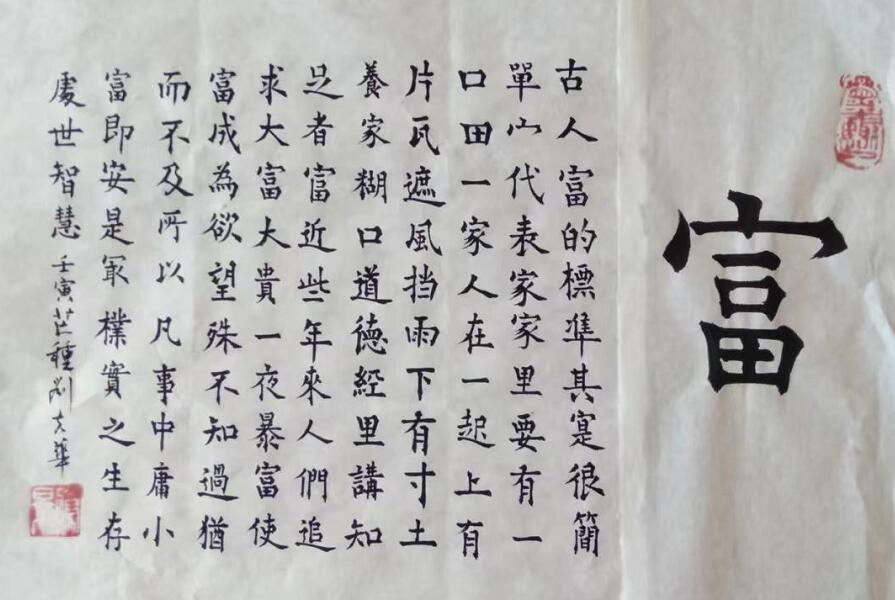 富
古人富的標準其寔很簡
單宀代表家家里要有一
口田一家人在一起上有
片瓦遮風挡雨下有寸土
養家糊口道德經里講知
足者富近些年來人們追
求大富大貴一夜暴富使
富成為欲望殊不知過猶
而不及所以凡事中庸小
富即安是冣樸實之生存
處世智慧
壬寅芒種劉文華